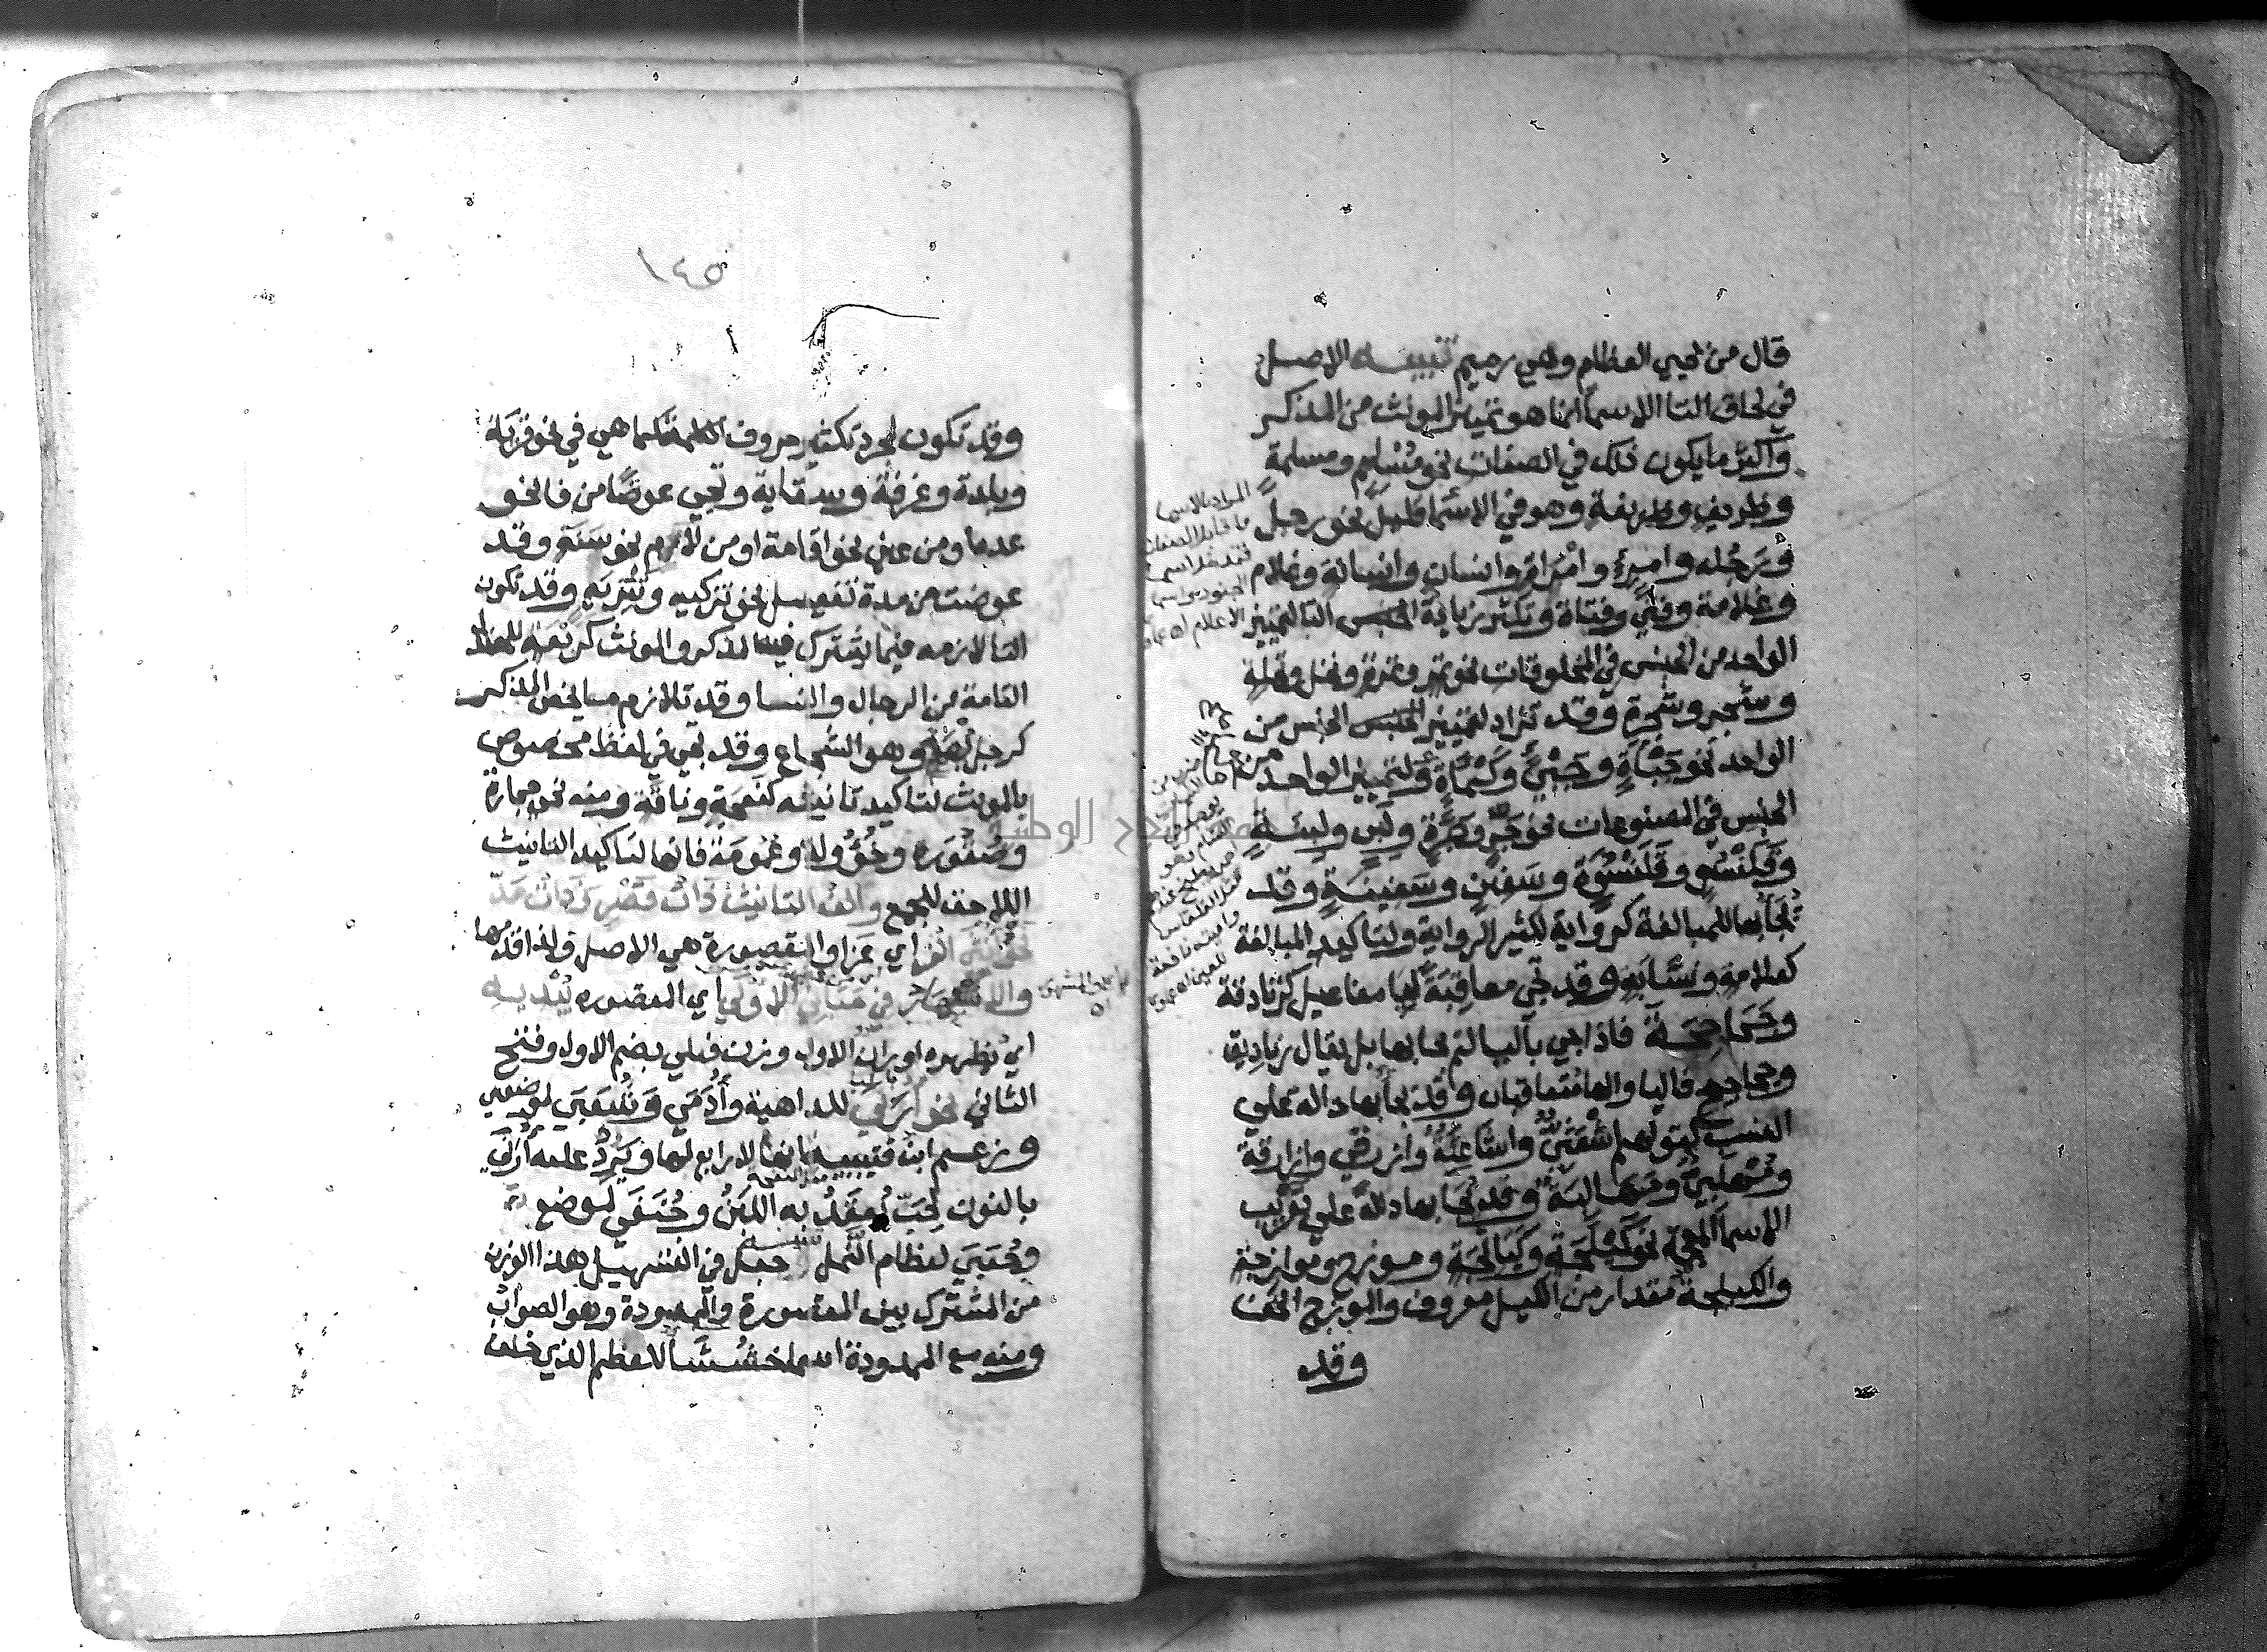 قال من يحيي العظام وهي رميم تنبيه الاصل
في لحاق التا الاسما انما هو تمييز المونث من المذكر
واكثر ما يكون ذلك في الصفات نحو مُسْلِمٍ ومسلمةٍ
وظريفٍ وظريفةٍ وهو في الاسما قليل نحو رجل
ورَجُله وامرئ وامْرَاة وانسان وانسانة وغلام
وغلامة وفتي وفتاة وتكثر زيادة التا لتمييز
الواحد من الجنس في المخلوقات نحو تمر وتمرة ونخل ونخلة
وشجر وشجرة وقد تزاد لتمييز الجنس من
الواحد نحو جَبْأَةٍ وجَبْئٍ وكَمْأَةٍ ولتمييز الواحد من
الجنس في المصنوعات نحو جَرٍّ وجَرَّةٍ ولَبِنٍ ولبِنَةٍ
وقَلَنْسُوٍ وقَلَنْسُوَةٍ وسَفِينٍ وسَفِينَةٍ وقد
يُجَأ بها للمبالغة كراوية لكثير الرواية ولتاكيد المبالغة
كعلامةٍ ونسَّابَةٍ وقد تجي معاقِبَةً ليا مفاعيل كزنادقة
وجَحَاجِحَةٍ فاذا جي باليا لم يجا بها بل يقال زناديق
وجحاجيح فاليا والها متعاقبان وقد يجأ بها دالة علي
النسب كقولهم اشْعَثِيٌّ واشَاعِثَةٌ وازرقي وازارقة
ومُهَلَّبِيٌّ ومَهَالبَةٌ وقد يُجَا بها دالة علي تعريب
الاسما العجمية نحو كَيْلَجَة وكَيَالجَة وموزج وموازجة
والكيلجة مقدار من الكيل معروف والموزج الخف
وقد
١٤٥
وقد تكون لمجرد تكثير حروف الكلمة كما هي في نحو قريَة
وبلدة وغرفة وسقاية وتجي عوضًا من فا نحو
عدة او من عين نحو اقامة او من لام نحو سَنَةٍ وقد
عوضت من مدة تفعيل نحو تزكيه وتَنْزِيَةٍ وقد تكون
التا لازمه فيما يشترك فيه المذكر والمونث كرَبْعَةٍ للمعتدل
القامة من الرجال والنسا وقد تلازم ما يخص المذكر
كرجل بُهْمَةٍ وهو الشجاع وقد تجي في لفظ مخصوص
بالمونث لتاكيد تانيثه كنعجةٍ وناقَة ومنه نحو حجارة
وصُقُورَه وخُؤُولة وعُمومَة فانها لتاكيد التانيث
اللاحق للجمع والف التانيث ذَاتُ قَصْرٍ وذَاتُ مَدّ
نحو أنثى الغُرِّ اي غرا والمقصورة هي الاصل ولذا قدمها
والاشتهار في مَبَانِي الأُولَي اي المقصوره يُبْدِيهِ
اي يظهره اوزان الاول وزن فعلي بضم الاول وفتح
الثاني نحو أُرَبَى للداهية وأُدَمَي وشُعَبَي لموضعين
وزعم ابن قتيبه انها لا رابع لها ويَرِدُ عليه أُرَنَي
بالنون لحَبّ يُعقَدُ به اللبَنُ وجُنَفَي لموضع
وجُعَبَي لعظام النمل تنبيه جعل في التسهيل هذا الوزن
من المشترك بين المقصورة والممدودة وهو الصواب
ومنه مع الممدودة اسما خُشَشَاُ للعظم الذي خلف